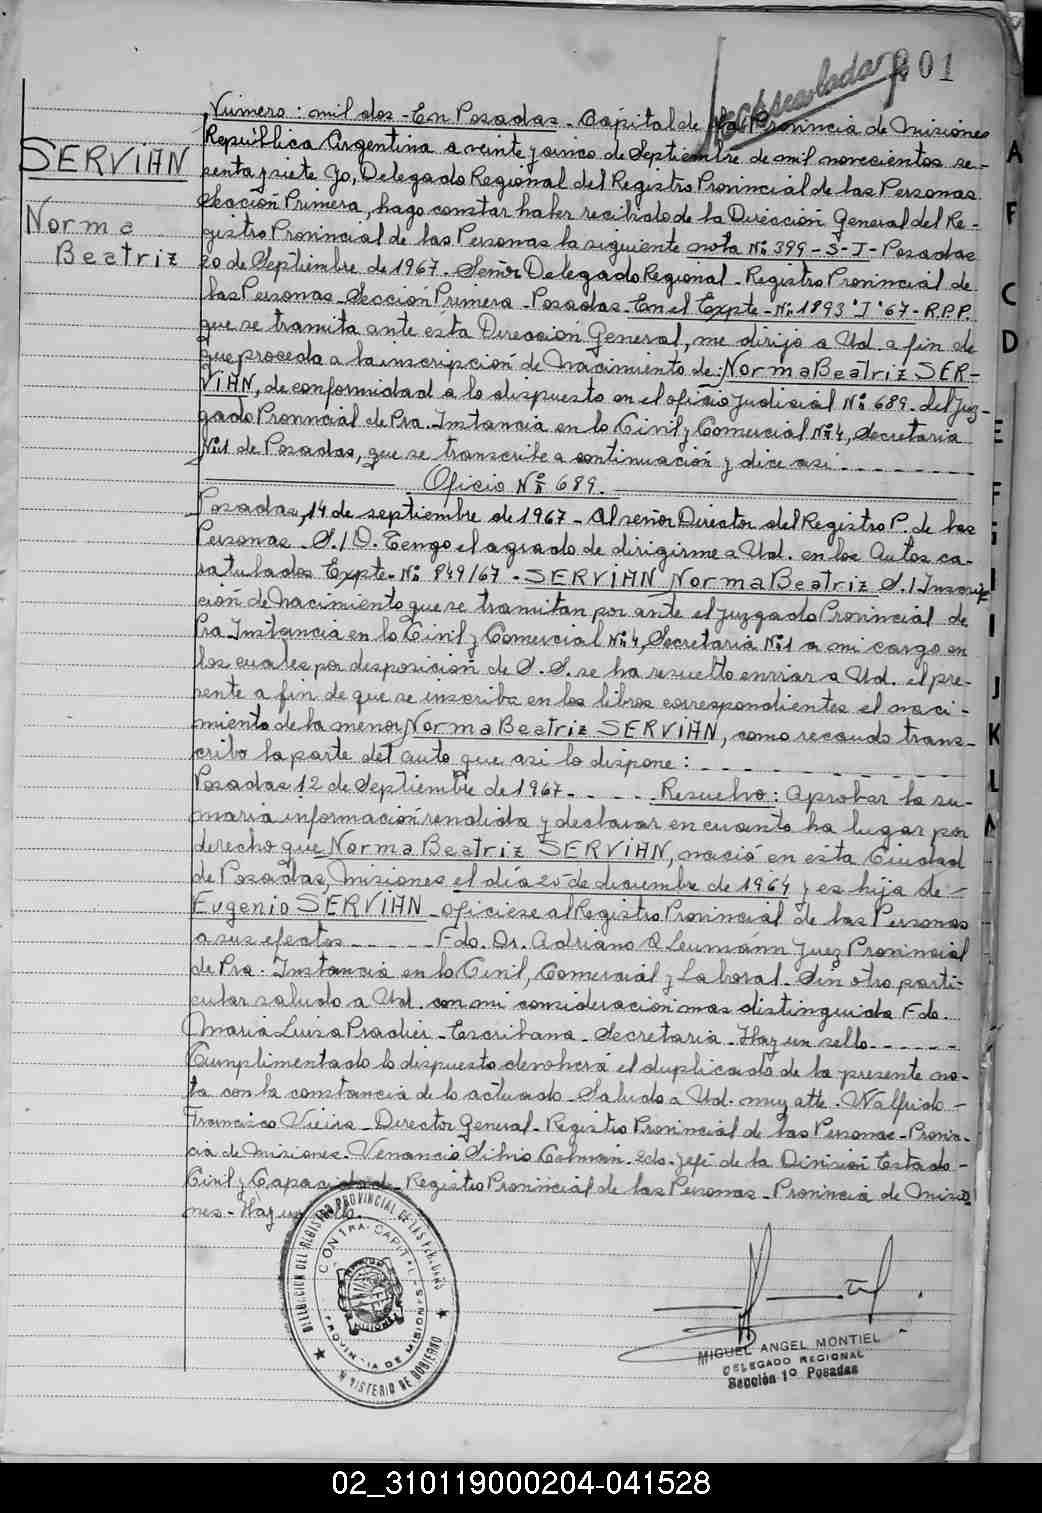 201
SERVIAN
Norma
Beatriz
Número: mil dos - En Posadas - Capital de la Provincia de Misiones
República Argentina a veinte y cinco de Septiembre de mil novecientos se-
senta y siete Yo, Delegado Regional del Registro Provincial de las Personas
Sección Primera, hago constar haber recibido de la Dirección General del Re-
gistro Provincial de las Personas la siguiente nota Nº 399 - S - J - Posadas
20 de Septiembre de 1967. Señor Delegado Regional - Registro Provincial de
las Personas - Sección Primera - Posadas - En el Expte - Nº 1893 "I" 67 - R.P.P.
que se tramita ante ésta Dirección General, me dirijo a Ud. a fin de
que proceda a la inscripción de Nacimiento de: Norma Beatriz SER-
VIAN, de conformidad a lo dispuesto en el oficio Judicial Nº 689 - del Juz-
gado Provncial de Pra. Instancia en lo Civil y Comercial Nº 4, Secretaria
Nº 1 de Posadas, que se transcribe a continuación y dice asi
Oficio Nº 689.
Posadas, 14 de septiembre de 1967 - Al señor Director del Registro P. de las
Personas - S. / D. Tengo el agrado de dirigirme a Ud. en los Autos ca-
ratulados Expte - Nº 849/67 - SERVIAN Norma Beatriz S./ Inscrip
ción de Nacimiento que se tramitan por ante el Juzgado Provincial de
Pra. Instancia en lo Civil y Comercial Nº 4, Secretaria Nº 1 a mi cargo en
los cuales por desposición de S. S. se ha resuelto enviar a Ud. el pre-
sente a fin de que se inscriba en los libros correspondientes el naci-
miento de la menor Norma Beatriz SERVIAN, como recaudo trans-
cribo la parte del auto que asi lo dispone:
Posadas 12 de Septiembre de 1967 - Resuelvo: Aprobar la su-
maria información rendida y declarar en cuanto ha lugar por
derecho que Norma Beatriz SERVIAN, nació en esta Ciudad
de Posadas, Misiones el día 25 de diciembre de 1964 y es hija de -
Eugenio SERVIAN - Oficiese al Registro Provincial de las Personas
a sus efectos - Fdo. Dr. Adriano Q Leumann Juez Provincial
de Pra. Instancia en lo Civil, Comercial y Laboral - Sin otro parti-
cular saludo a Ud. con mi consideracion mas distinguida Fdo.
Maria Luisa Pradier - Escribana - Secretaria - Hay un sello
Cumplimentado lo dispuesto devolverá el duplicado de la presente no-
ta con la constancia de lo actuado - Saludo a Ud. muy atte. Walfrido -
Francisco Vieira - Director General - Registro Provincial de las Personas - Provin-
cia de Misiones - Venancio Silvio 2do. Jefe de la Division Estado -
Civil y Capacidad - Registro Provincial de las Personas - Provincia de Misio
nes - Hay un
DIRECCION DEL REGISTRO PROVINCIAL DE LAS PERSONAS
CONTRA. CAPITAL
PROVINCIA DE MISIONES
MINISTERIO DE GOBIERNO
MIGUEL ANGEL MONTIEL
DELEGADO REGIONAL
Sección 1º Posadas
A
F
C
D
E
F
I
I
J
K
L
02_310119000204-041528